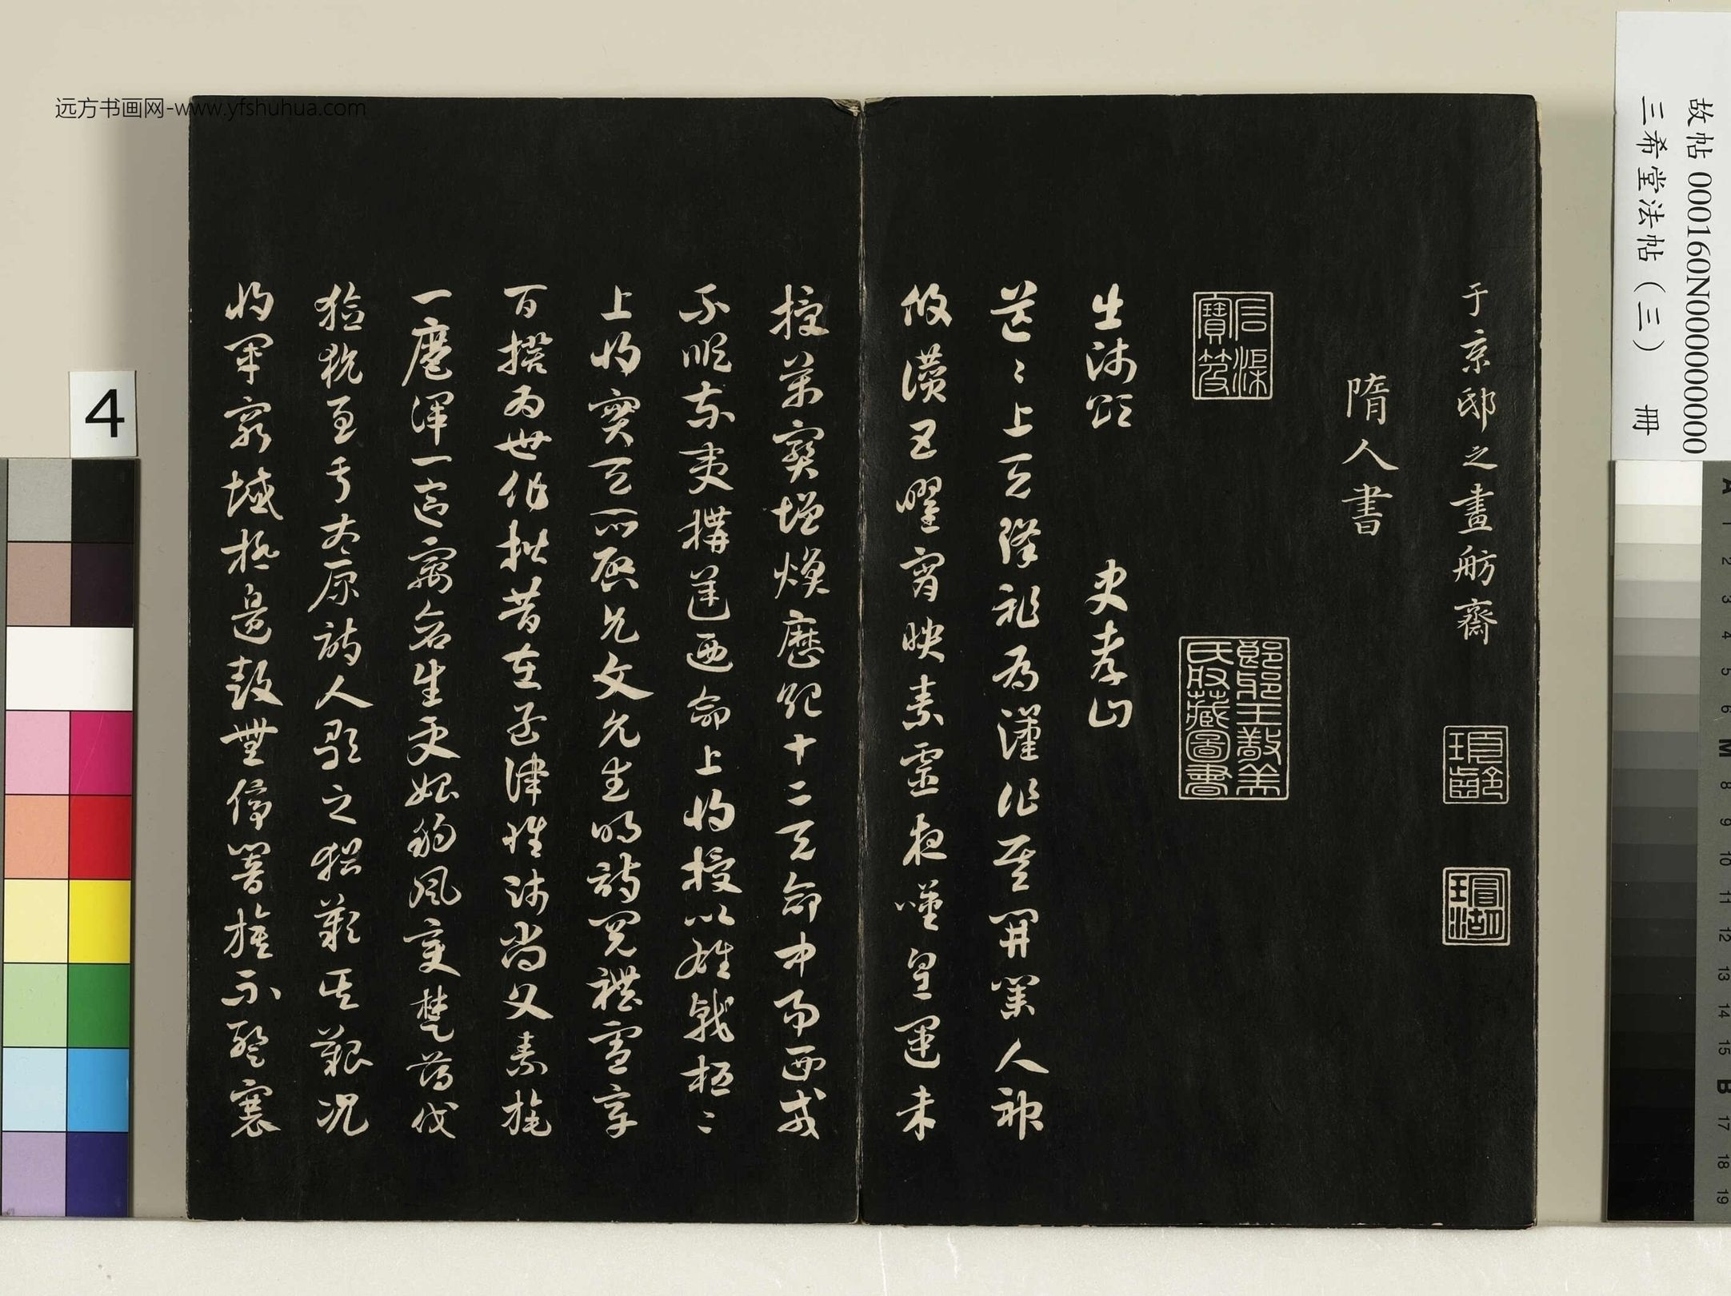 远方书画网-www.yfshuhua.com
故帖 000160N000000000
三希堂法帖（三） 冊
于京邸之畫舫齋
頊齡
瑁湖
隋人書
石渠寶笈
郎邪王敬美氏收藏圖書
出師頌 史孝山
芒〻上天降祚為漢作基開業人神
攸讚五曜霄映素靈夜嘆皇運未
授萬寶增煥歷紀十二天命中易西戎
不順東夷搆逆命上將授以雄戟桓〻
上將寔天所啟允文允武明詩閱禮憲章
百揆為世作楷昔在孟津惟師尚父素旄
一麾渾一區宇蒼生更始朔風變楚薄伐
獫狁至于太原詩人歌之猶歎其艱況
將軍窮域極邊鼓無停響旗不蹔褰
4